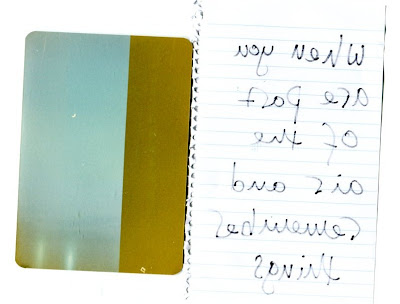 When you
are part
of the
air and
remember
things